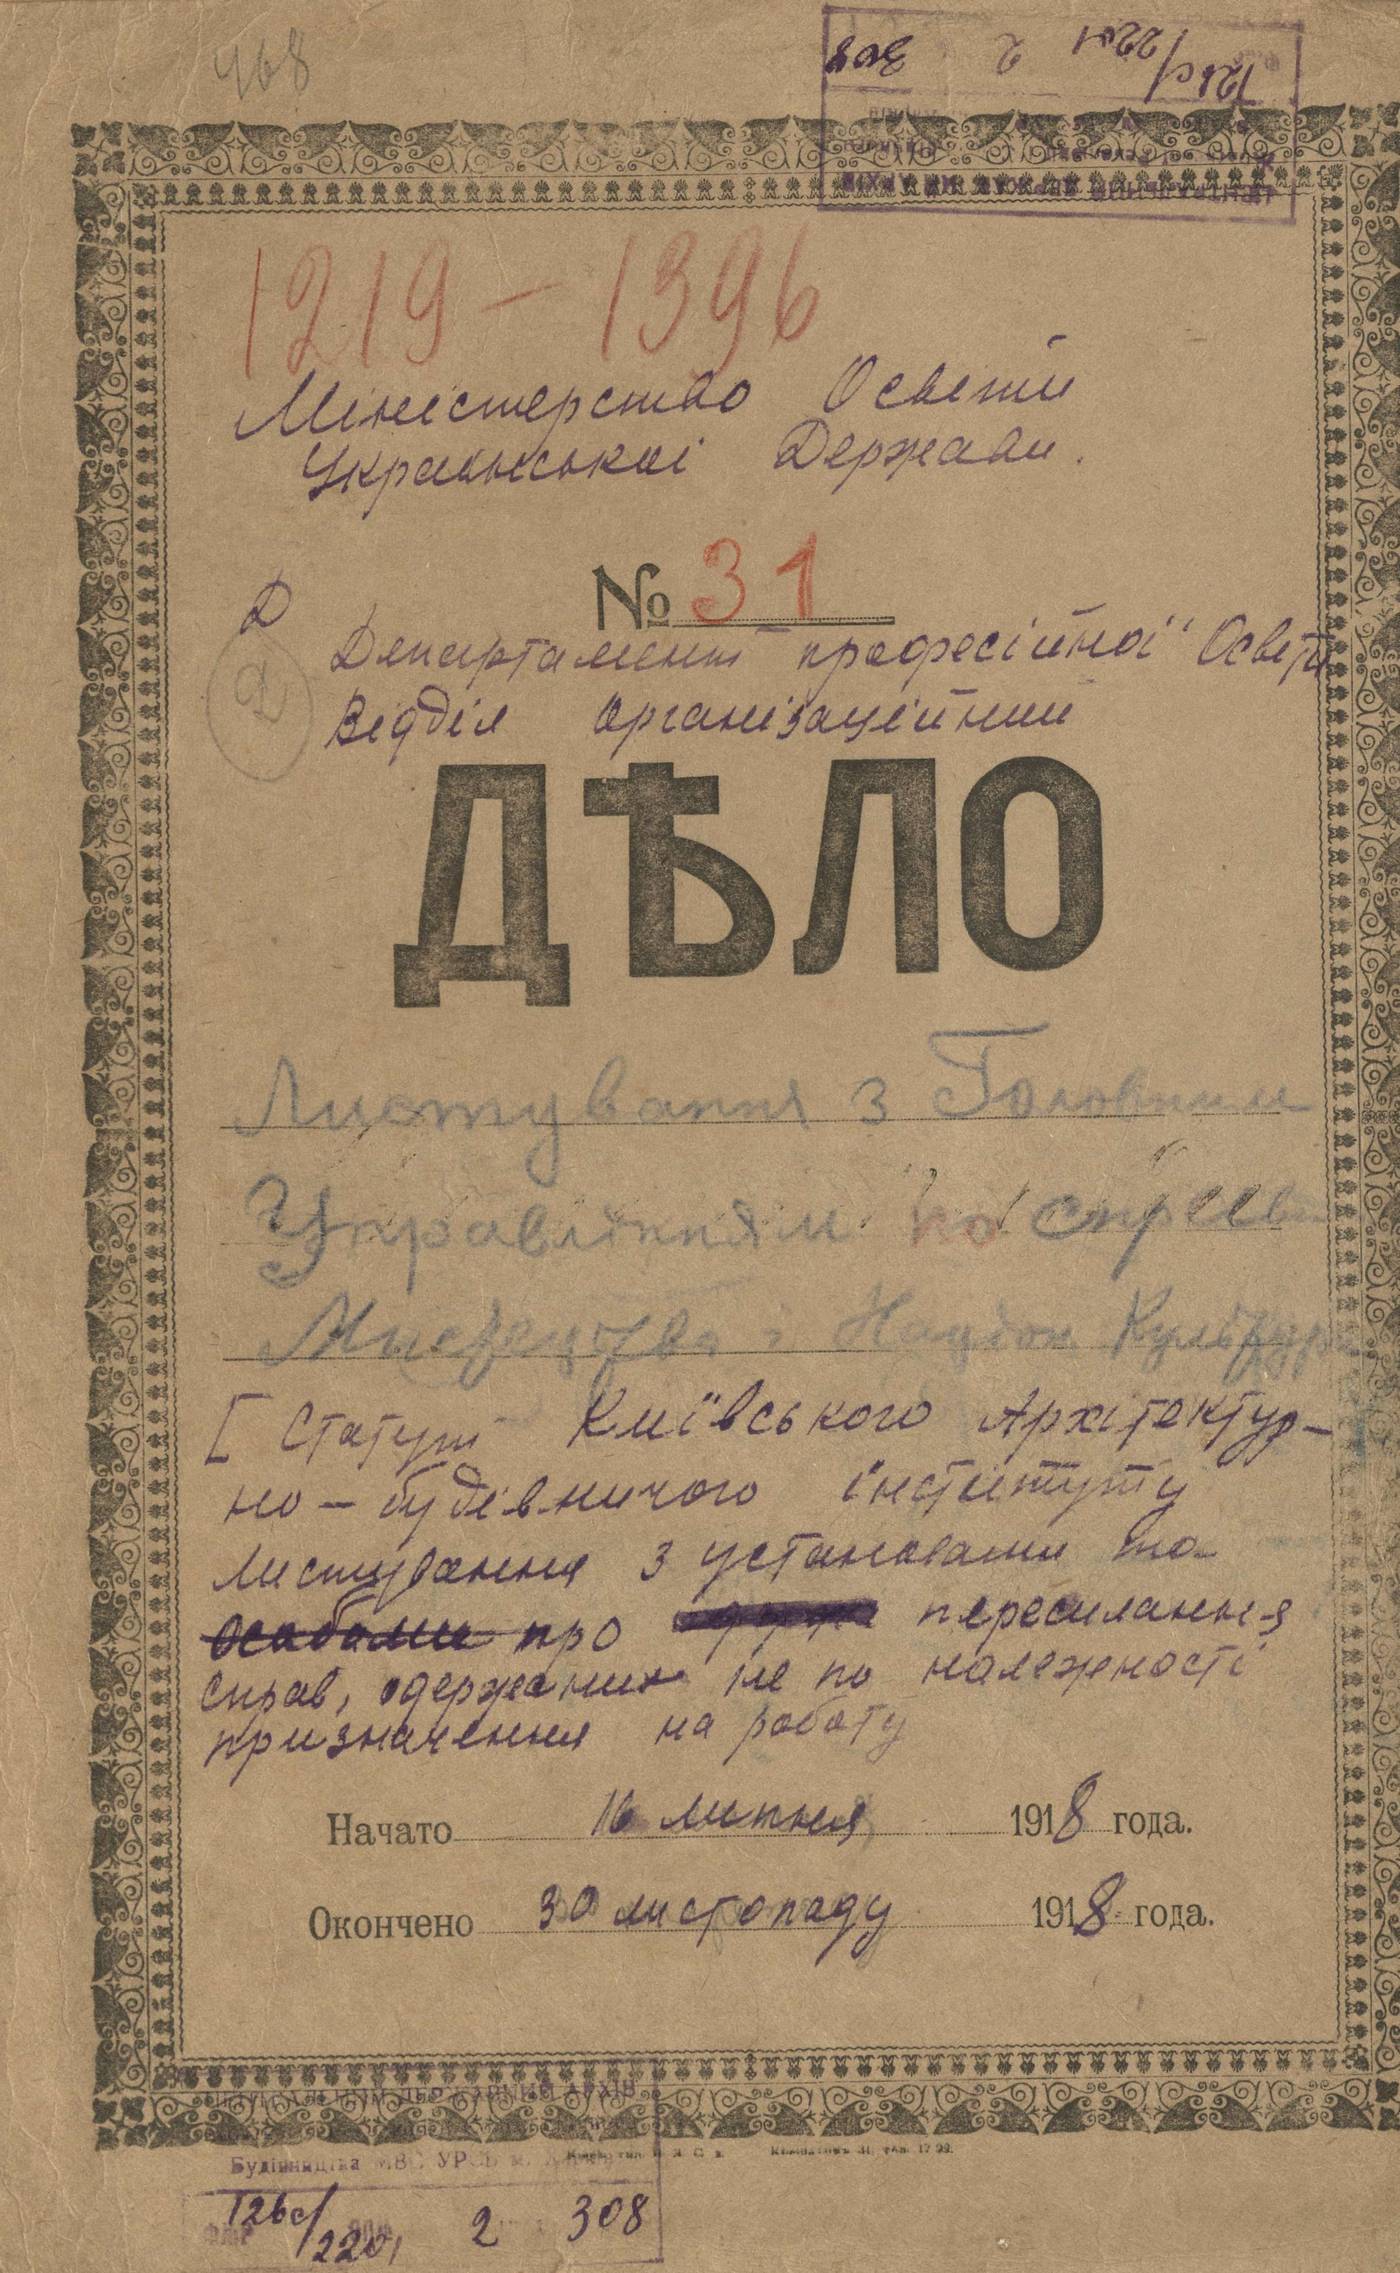 468
126с/2201 2 308
1219 – 1396
Міністерство Освіти
Української Держави.
№ 31
Д
Департамент професійної Освіти
2
Відділ організаційний
ДѢЛО
Листування з Головним
Управлінням по справ
Мистецтва і Націон Культури
[ Статут Київського Архітектур-
но – будівничого інституту
листування з установами та
особами про пересилання
справ, одержаних не по належності
призначення на роботу
Начато 16 липня 1918 года.
Окончено 30 листопаду 1918 года.
АРХІВ
Будівництва МВС УРСР м.
126с/2201 2 308